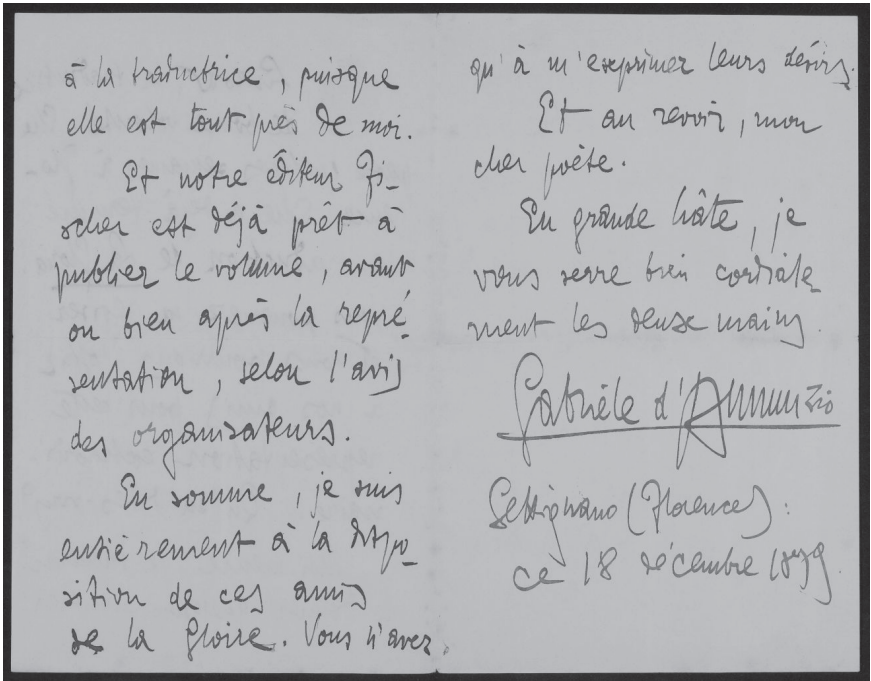 à la traductrice, puisque
elle est tout près de moi.
Et notre éditeur Fi-
scher est déjà prêt à
publier le volume, avant
ou bien après la repré-
sentation, selon l'avis
des organisateurs.
En somme, je suis
entièrement à la dispo-
sition de ces amis
de la Gloire. Vous n'avez
qu'à m'exprimer leurs désirs.
Et au revoir, mon
cher poète.
En grande hâte, je
vous serre bien cordiale-
ment les deux mains.
Gabriele d'Annunzio
Settignano (Florence):
ce 18 décembre